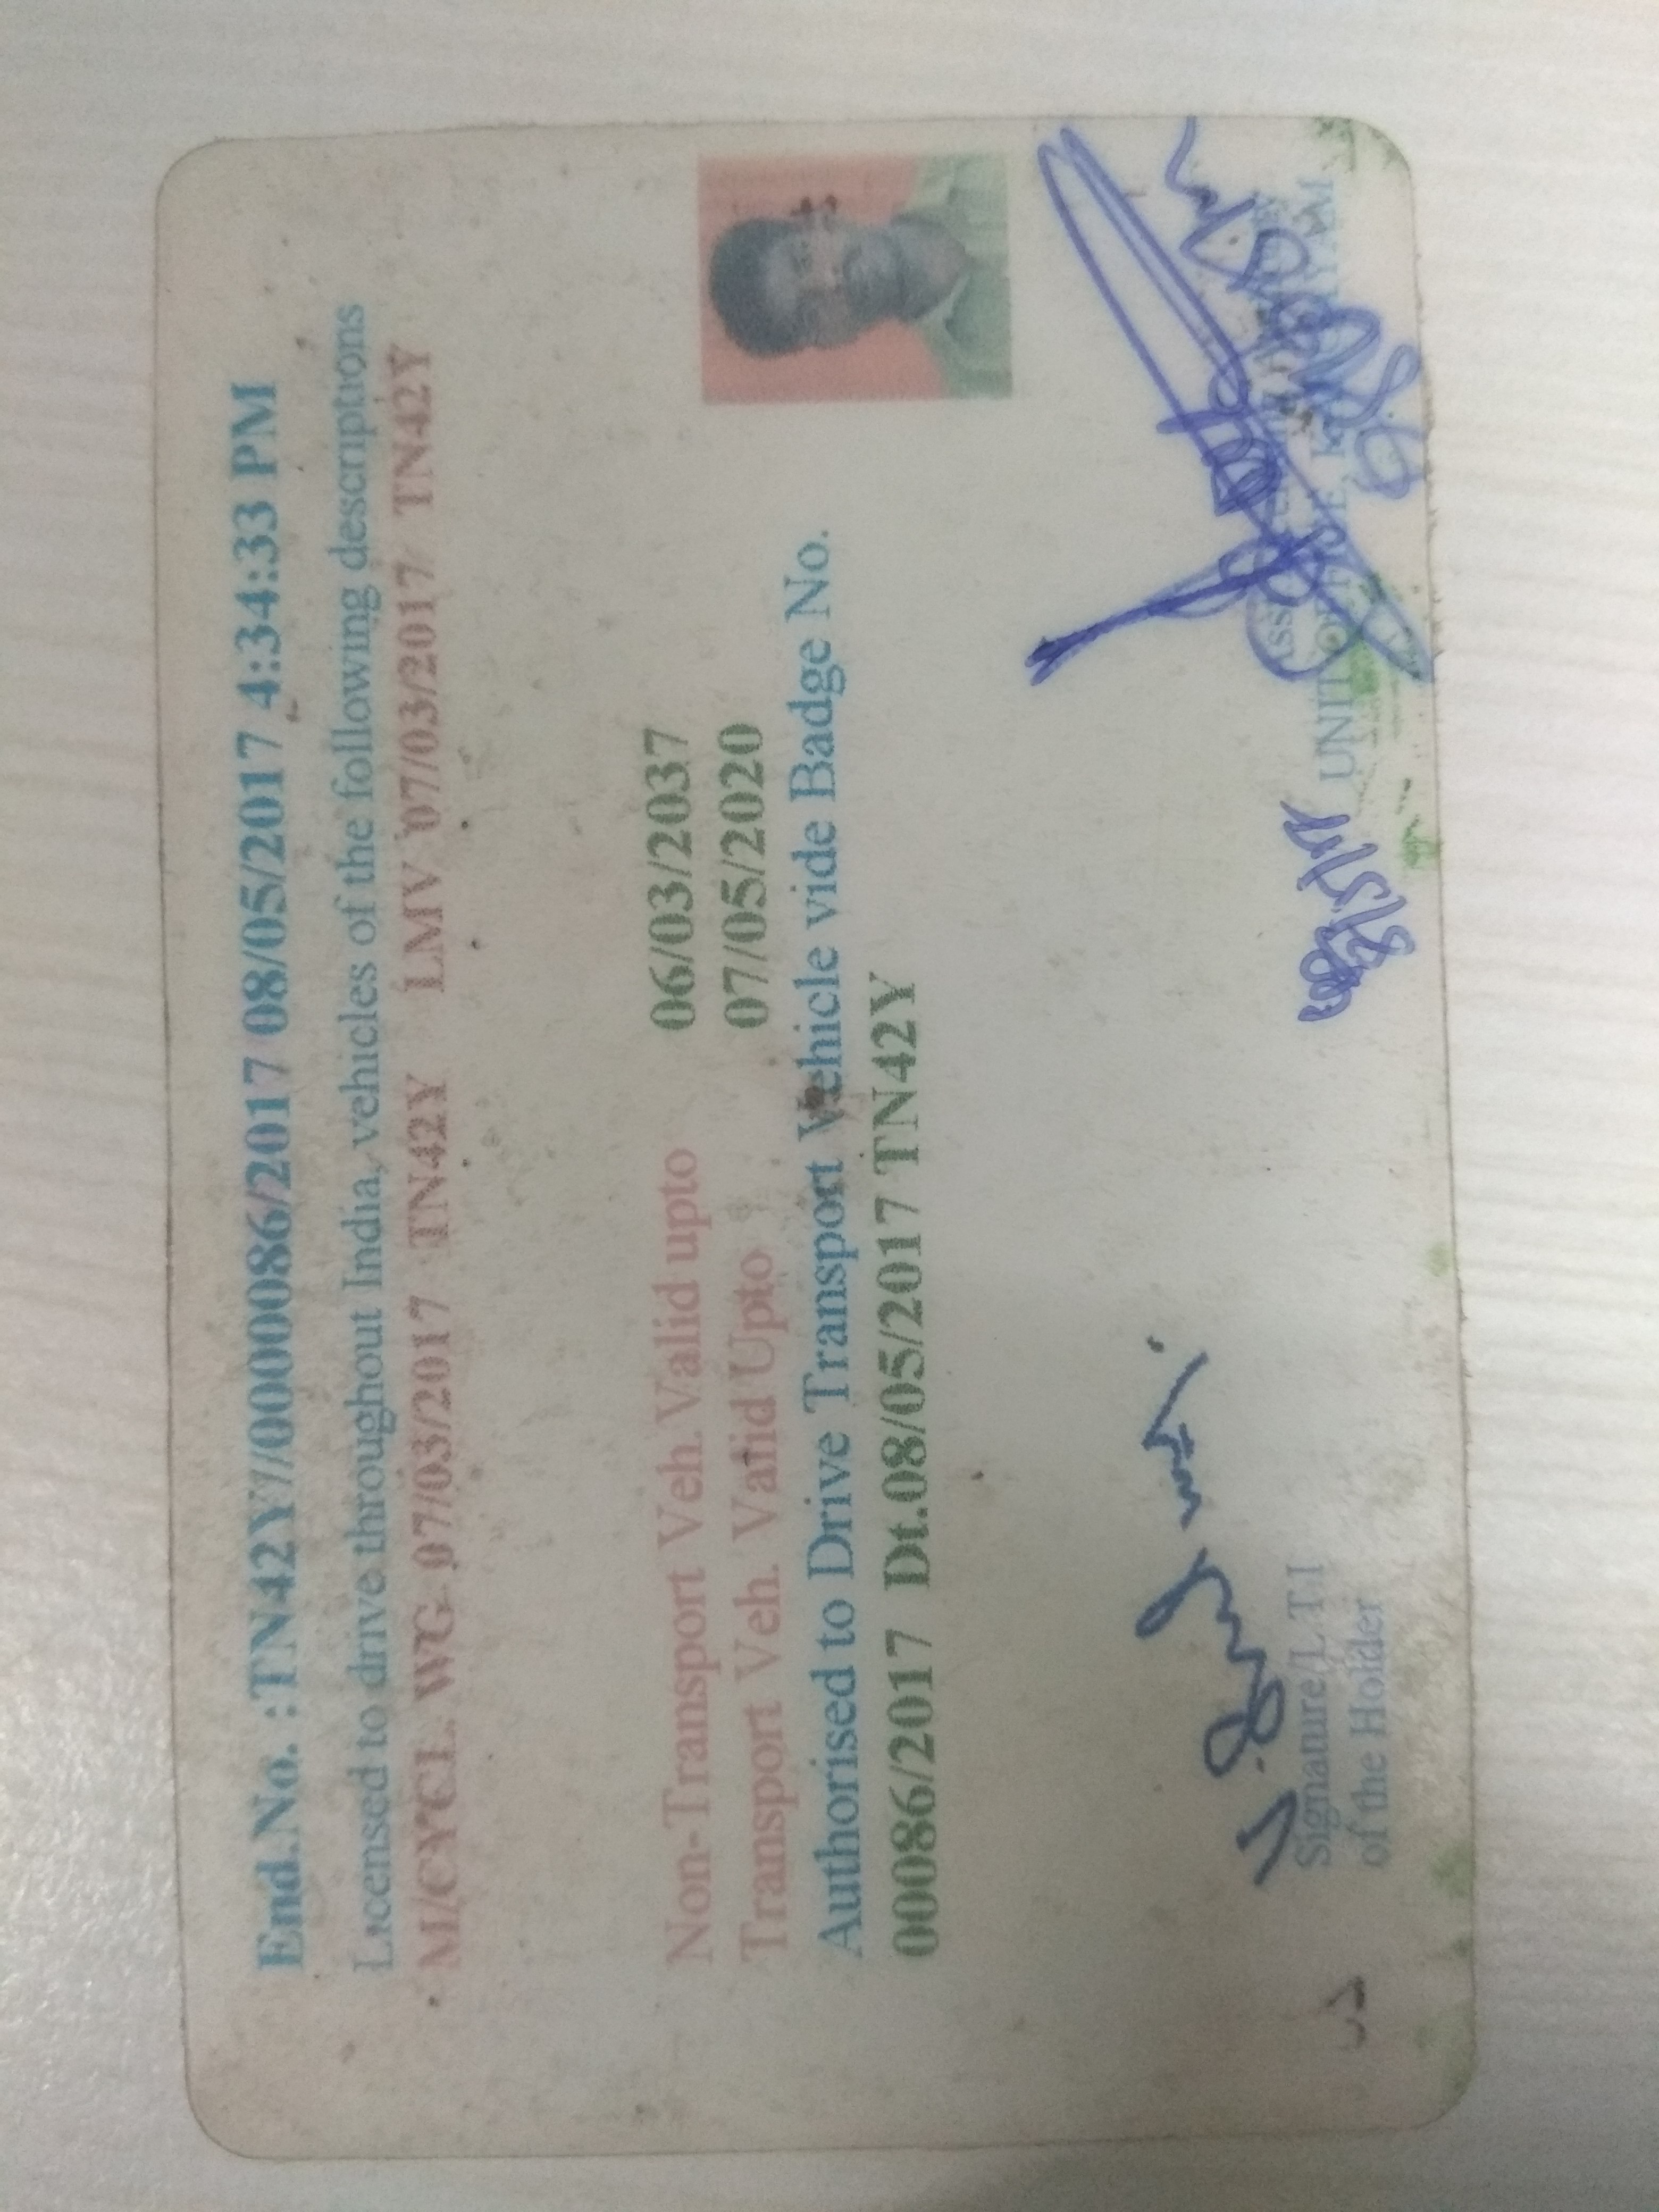 End.No. :TN42Y/0000086/2017 08/05/2017 4:34:33 PM
Licensed to drive throughout India, vehicles of the following descriptions
M/CYCL. WG 07/03/2017 TN42Y LMV 07/03/2017 TN42Y
Non-Transport Veh. Valid upto 06/03/2037
Transport Veh. Valid Upto 07/05/2020
Authorised to Drive Transport Vehicle vide Badge No.
00086/2017 Dt.08/05/2017 TN42Y
Signanure/L.T.I
of the Holder
UNIT OFFICE